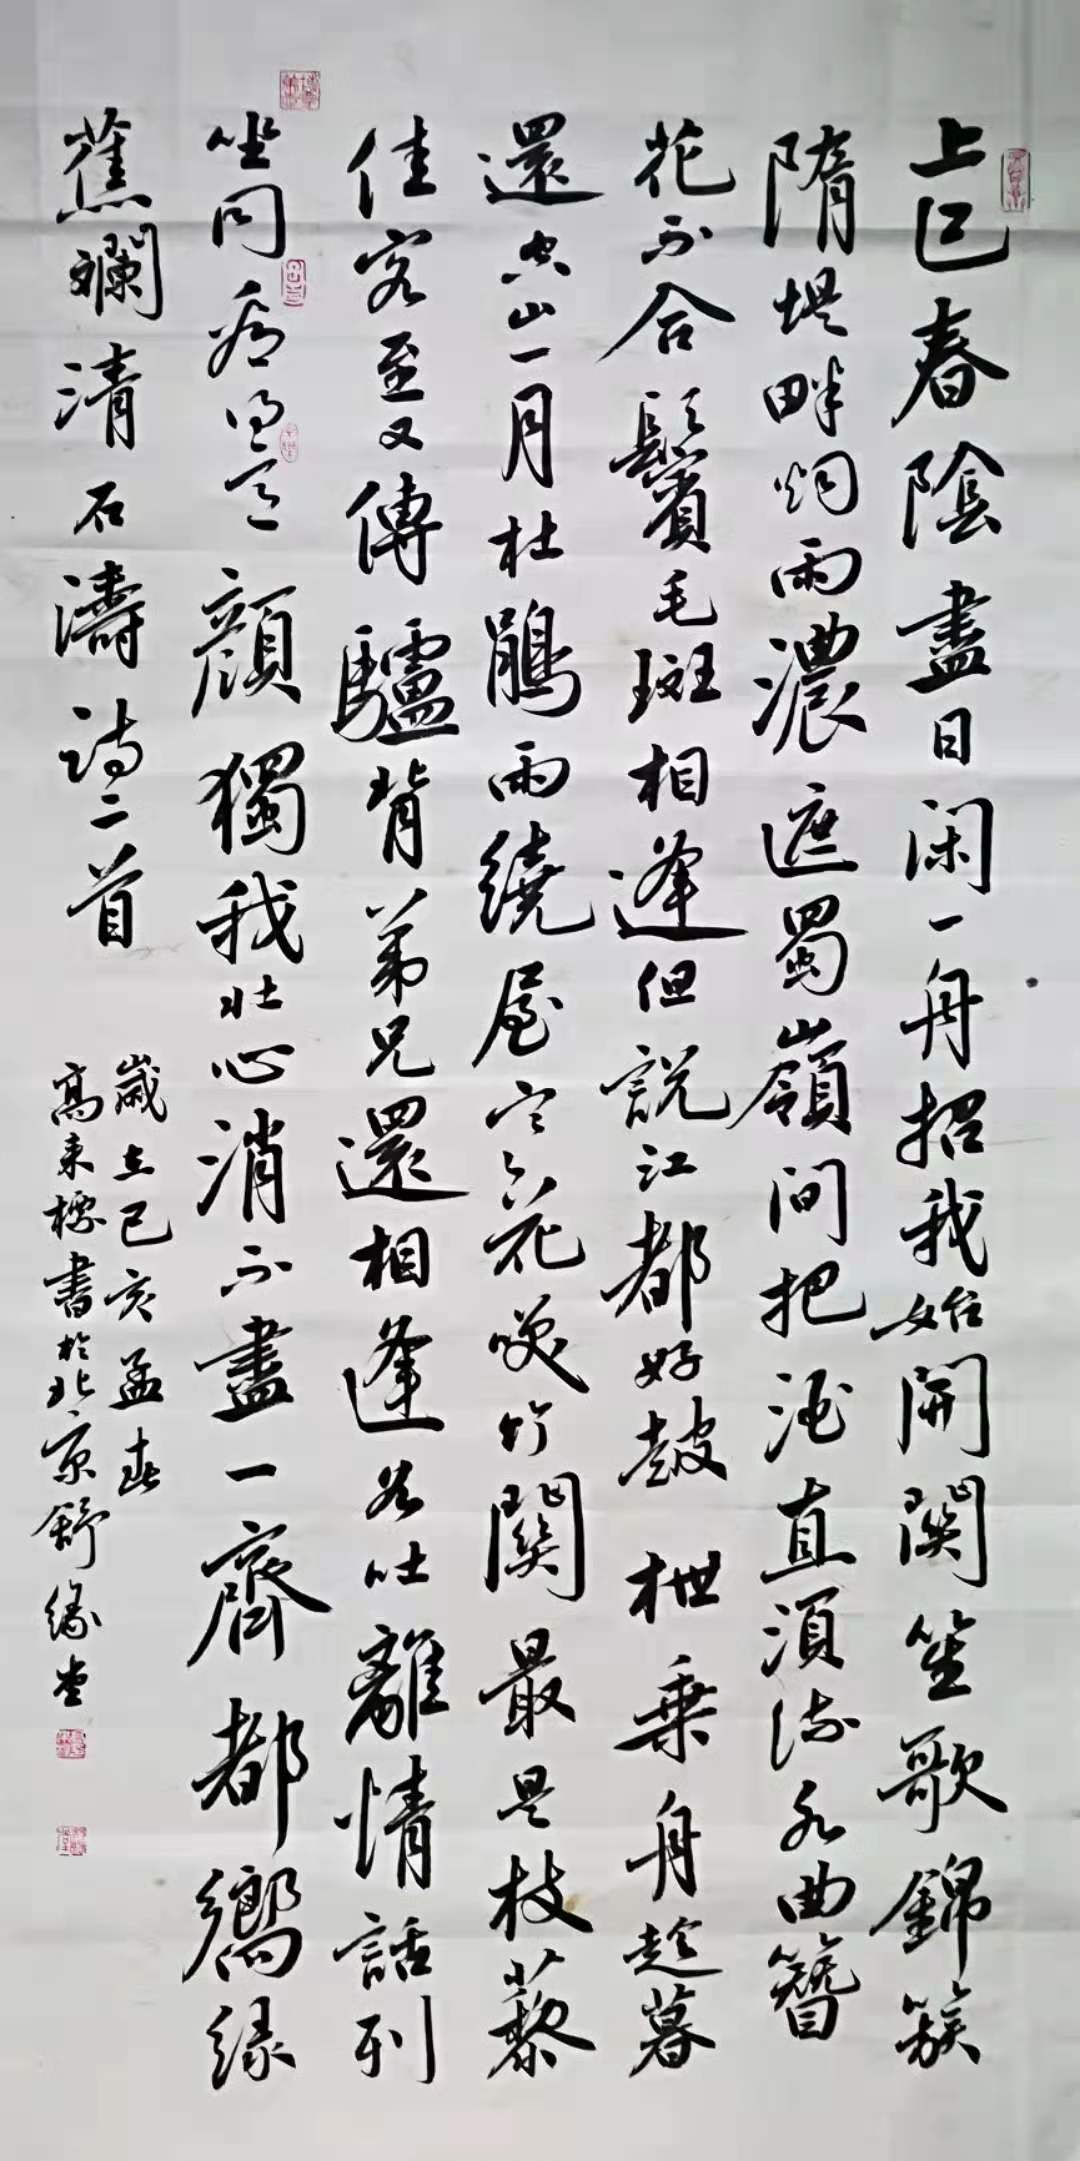 上巳春陰盡日闲一舟招我始開関笙歌錦簇
隋堤畔烟雨濃遮蜀嶺间把酒直須流水曲簪
花不合鬢毛斑相逢但說江都好鼓枻乘舟趁暮
還空山一月杜鵑雨繞屋寒花暎竹関最是枝藜
佳客至又傳驢背弟兄還相逢各吐離情話列
坐同看得意顔獨我壮心消不盡一齊都嚮緑
蕉斕清石濤詩二首
歲在己亥孟春
高東標書於北京舒緣堂